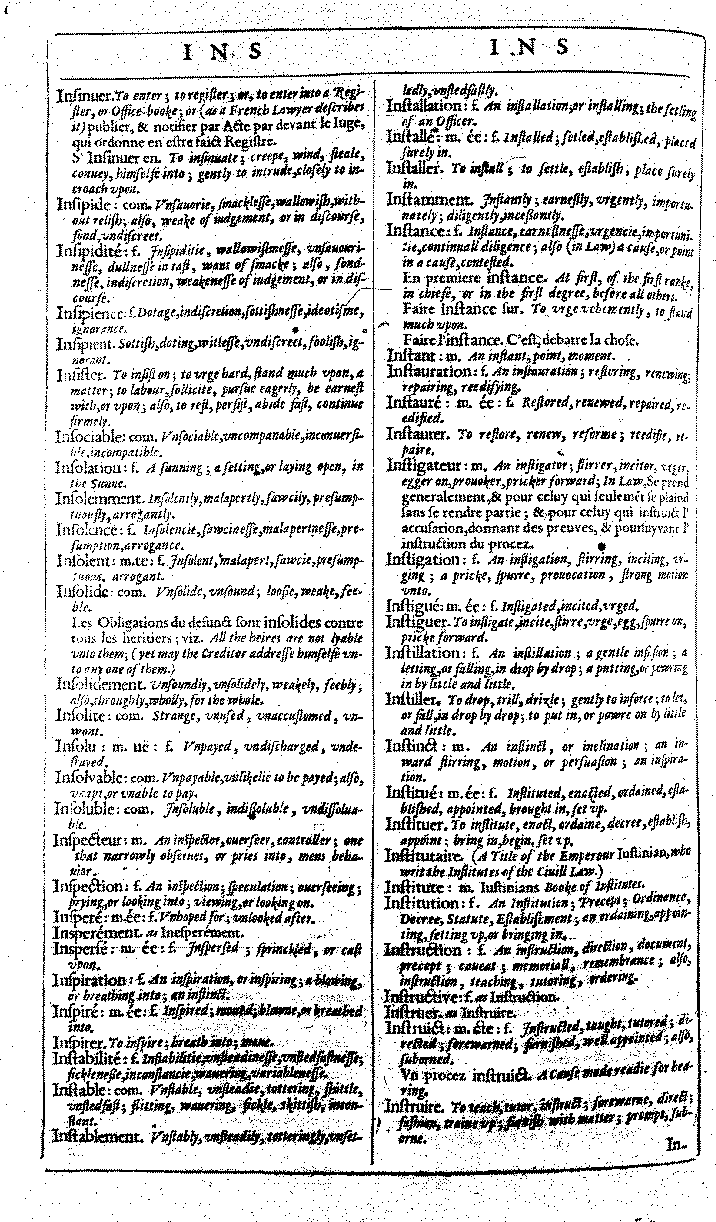 I N S
Insinuer. To enter; to register; or, to enter into a Regi-
ster, or Office-booke; or (as a French Lawyer describes
it) publier, & notifier par Acte par devant le Iuge,
qui ordonne en estre faict Registre.
S' Insinuer en. To insinuate; creepe, wind, steale,
conuey, himselfe into; gently to intrude, closely to in-
croach vpon.
Insipide: com. Vnsauorie, smacklesse, wallowish, with-
out relish; also, weake of iudgement, or in discourse,
fond, vndiscreet.
Insipidité: f. Insipiditie, wallowishnesse, vnsauouri-
nesse, dullnesse in tast, want of smacke; also, fond-
nesse, indiscretion, weakenesse of iudgement, or in dis-
course.
Insipience: f. Dotage, indiscretion, sottishnesse, ideotisme,
ignorance.
Insipient. Sottish, doting, witlesse, vndiscreet, foolish, ig-
norant.
Insister. To insist on; to vrge hard, stand much vpon, a
matter; to labour, sollicite, pursue eagerly, be earnest
with, or vpon; also, to rest, persist, abide fast, continue
firmely.
Insociable: com. Vnsociable, vncompanable, inconuersi-
ble, incompatible.
Insolation: f. A sunning; a setting, or laying open, in
the Sunne.
Insolemment. Insolently, malapertly, sawcily, presump-
tuously, arrogantly.
Insolence: f. Insolencie, sawcinesse, malapertnesse, pre-
sumption, arrogance.
Insolent: m. te: f. Insolent, malapert, sawcie, presump-
tuous, arrogant.
Insolide: com. Vnsolide, vnsound; loose, weake, fee-
ble.
Les Obligations du defunct sont insolides contre
tous les heritiers; viz. All the heires are not lyable
vnto them; (yet may the Creditor addresse himselfe vn-
to any one of them.)
Insolidement. Vnsoundly, vnsolidely, weakely, feebly;
also, throughly, wholly, for the whole.
Insolite: com. Strange, vnused, vnaccustomed, vn-
wont.
Insolu: m. uë: f. Vnpayed, vndischarged, vnde-
frayed.
Insolvable: com. Vnpayable, vnlikelie to be payed; also,
vnapt, or vnable to pay.
Insoluble: com. Insoluble, indissoluble, vndissolua-
ble.
Inspecteur: m. An inspector, ouerseer, controller; one
that narrowly obserues, or pries into, mens beha-
uior.
Inspection: f. An inspection; speculation; ouerseeing;
prying, or looking into; viewing, or looking on.
Insperé: m. ée: f. Vnhoped for; vnlooked after.
Insperément. as Inesperément.
Inspersé: m. ée: f. Inspersed; sprinckled, or cast
vpon.
Inspiration: f. An inspiration, or inspiring; a blowing,
or breathing into; an instinct.
Inspiré: m. ée: f. Inspired; moued; blowne, or breathed
into.
Inspirer. To inspire; breath into; moue.
Instabilité: f. Instabilitie, vnsteadinesse, vnstedfastnesse;
ficklenesse, inconstancie, wauering, variablenesse.
Instable: com. Vnstable, vnsteadie, tottering, stittle,
vnstedfast; flitting, wauering, fickle, skittish, incon-
stant.
Instablement. Vnstably, vnsteadily, totteringly, vnste-
I N S
ledly, vnstedfastly.
Installation: f. An installation, or installing; the setling
of an Officer.
Installé: m. ée: f. Installed; setled, established, placed
surely in.
Installer. To install; to settle, establish, place surely
in.
Instamment. Instantly; earnestly, vrgently, importu-
nately; diligently, incessantly.
Instance: f. Instance, earnestnesse, vrgencie, importuni-
tie, continuall diligence; also (in Law) a cause, or point
in a cause, contested.
En premiere instance. At first, of the first ranke,
in chiefe, or in the first degree, before all others.
Faire Instance sur. To vrge vehemently, to stand
much vpon.
Faire l'instance. C'est, debatre la chose.
Instant: m. An instant, point, moment.
Instauration: f. An instauration; restoring, renewing;
repairing, reedifying.
Instauré: m. ée: f. Restored, renewed, repaired, re-
edified.
Instaurer. To restore, renew, reforme; reedifie, re-
paire.
Instigateur: m. An instigator; stirrer, incitor, vrger,
egger on, prouoker, pricker forward; In Law, Se prend
generalement, & pour celuy qui seulemēt se plaind
sans se rendre partie; & pour celuy qui instruict l'
accusation, donnant des preuves, & poursuyvant l'
instruction du procez.
Instigation: f. An instigation, stirring, inciting, vr-
ging; a pricke, spurre, prouocation, strong motion
vnto.
Instigué: m. ée: f. Instigated, incited, vrged.
Instiguer. To instigate, incite, stirre, vrge, egg, spurre on,
pricke forward.
Instillation: f. An instillation; a gentle infusion; a
letting, or falling, in drop by drop; a putting, or powring
in by little and little.
Instiller. To drop, trill, drizle; gently to inforce; to let,
or fall, in drop by drop; to put in, or powre on by little
and little.
Instinct: m. An instinct, or inclination; an in-
ward stirring, motion, or persuasion; an inspira-
tion.
Institué: m. ée: f. Instituted, enacted, ordained, esta-
blished, appointed, brought in, set vp.
Instituer. To institute, enact, ordaine, decree, establish,
appoint; bring in, begin, set vp.
Institutaire. (A Title of the Emperour Iustinian, who
writ the Institutes of the Ciuill Law.)
Institute: m. Iustinians Booke of Institutes.
Institution: f. An Institution; Precept; Ordinance,
Decree, Statute, Establishment; an ordaining, appoin-
ting, setting vp, or bringing in.
Instruction: f. An instruction, direction, document,
precept; caueat; memoriall, remembrance; also,
instruction, teaching, tutoring, ordering.
Instructive: f. as Instruction.
Instruer. as Instruire.
Instruict: m. cte: f. Instructed, taught, tutored; di-
rected; forewarned; furnished, well appointed; also,
suborned.
Vn procez instruict. A Cause made readie for hea-
ring.
Instruire. To teach, tutor, instruct; forewarne, direct;
fashion, traine vp; furnish with matter; prompt, sub-
orne.
In-